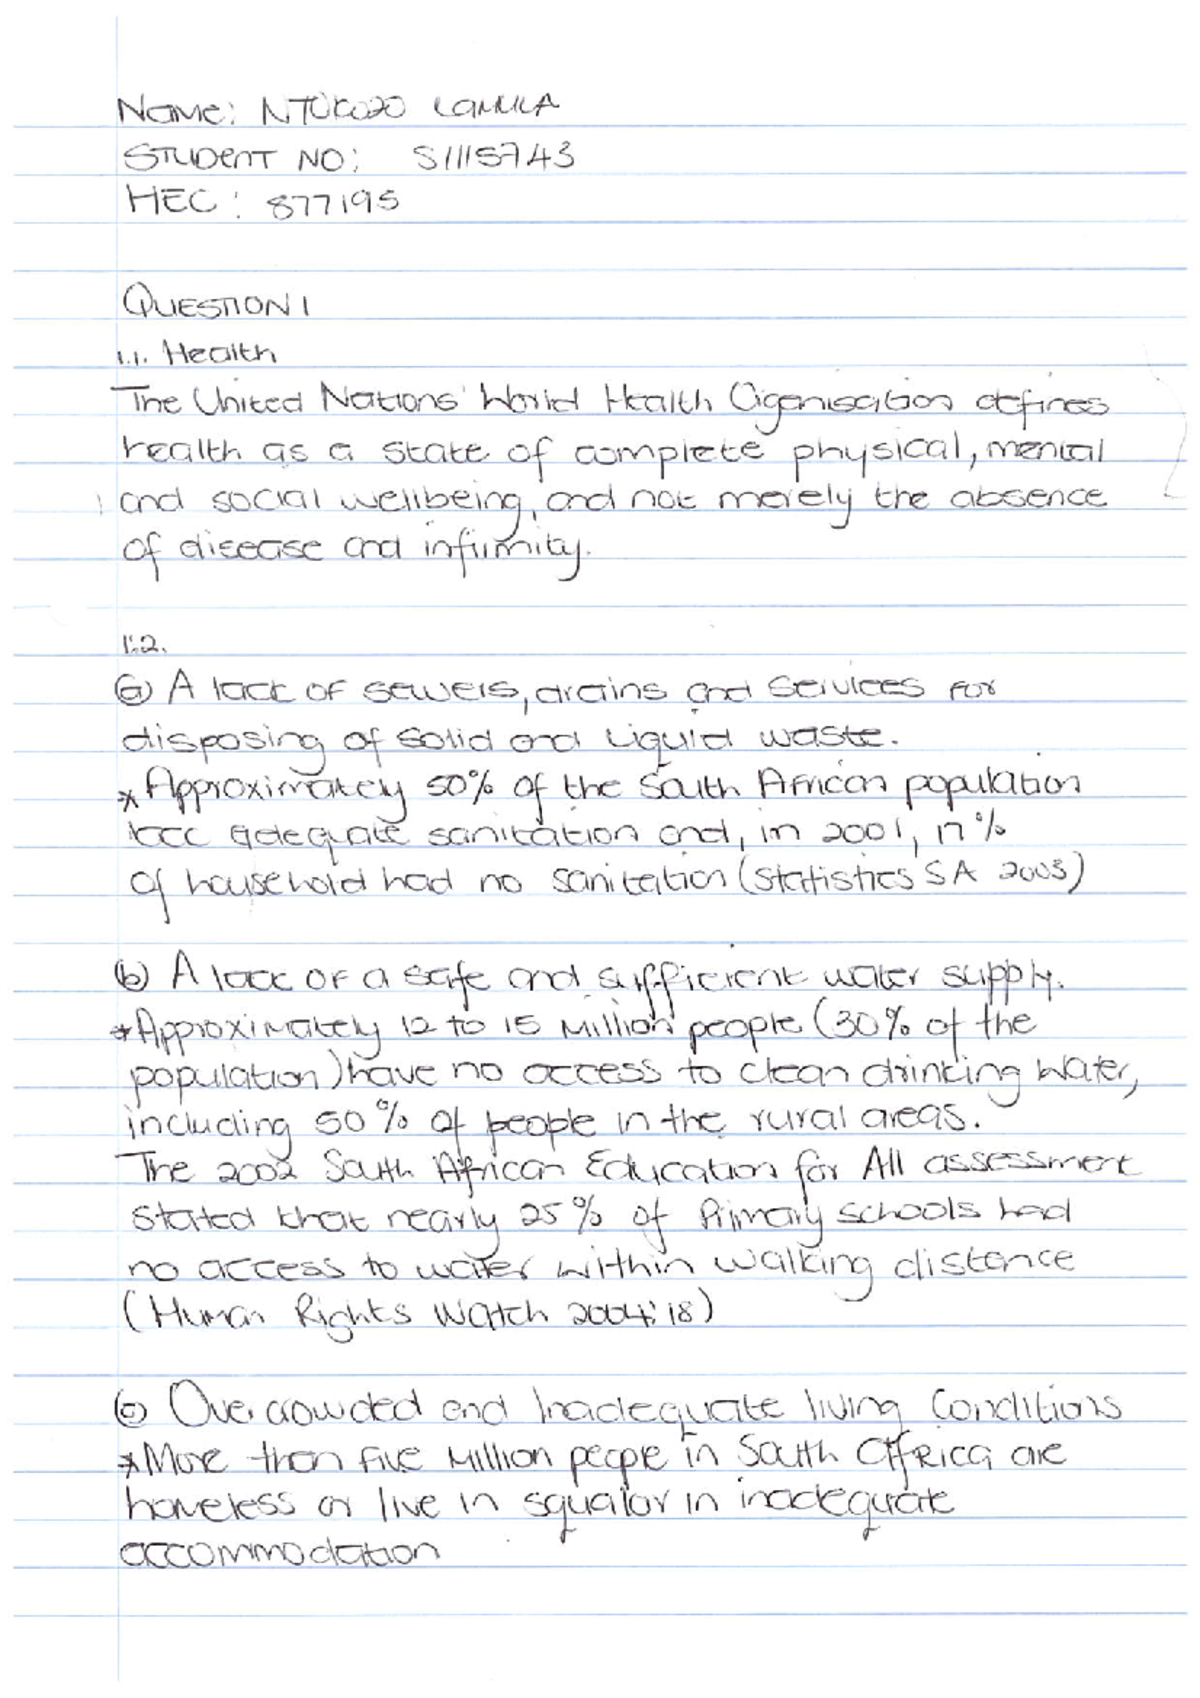 Name: NTOKOZO
STUDENT NO: S11115743
HEC: 877195
QUESTION 1
1.1. Health
The United Nations' World Health Organisation defines
health as a state of complete physical, mental
and social wellbeing, and not merely the absence
of disease and infirmity.
1.2.
(a) A lack OF sewers, drains and Services FOR
disposing of solid and Liquid waste.
* Approximately 50% of the South African population
adequate sanitation and, in 2001, 17%
of household had no sanitation (Statistics SA 2003)
(b) A lack OF a safe and sufficient water supply.
* Approximately 12 to 15 Million people (30% of the
population) have no access to clean drinking Water,
including 50% of people in the rural areas.
The 2002 South African Education for All assessment
stated that nearly 25% of Primary schools had
no access to water within walking distance
(Human Rights Watch 2004:18)
(c) Overcrowded and Inadequate living Conditions
* More than five Million people in South Africa are
homeless or live in squalor in inadequate
accommodation